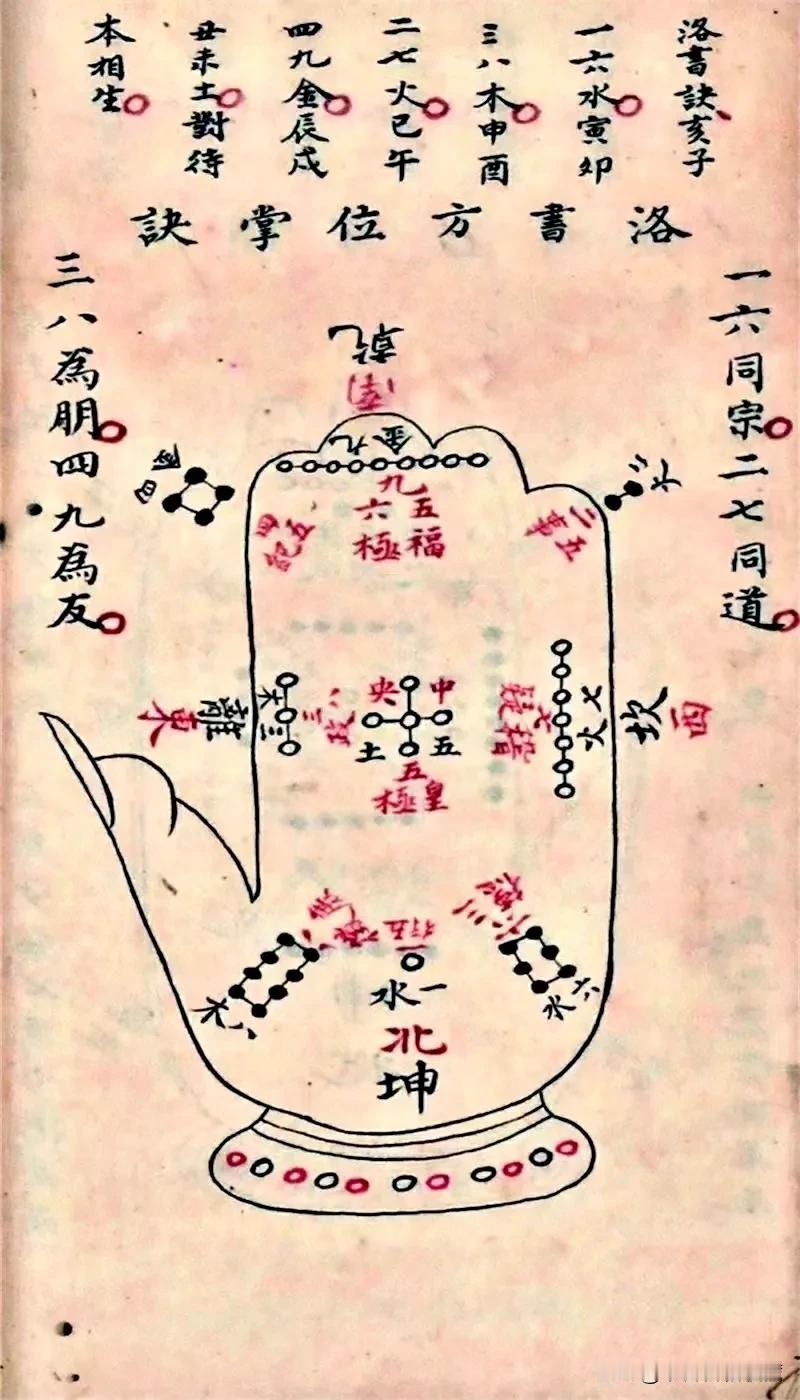 洛書訣亥子
一六水寅卯
三八木申酉
二七火巳午
四九金辰戌
丑未土對待
本相生
洛書方位掌訣
一六同宗二七同道
三八為朋四九為友
乾
九金
九
五福
六極
五事
二
五紀
四
火二
四
東
離
三木
八政
三
中央
五土
五
皇極
七火
七
稽疑
坎
西
五行
一
一水
北
坤
八木
六水
六三